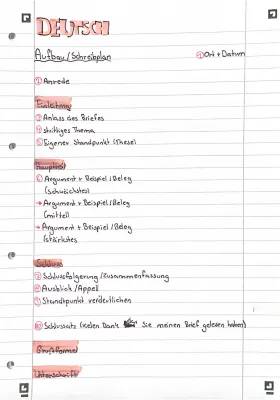 DEUTSCH
Aufbau/Schreibplan
① Ort + Datum
② Anrede
Einleitung
③ Anlass des Briefes
④ strittiges Thema
⑤ Eigener Standpunkt (These)
Hauptteil
⑥ Argument + Beispiel/Beleg
(schwächstes)
→ Argument + Beispiel/Beleg
(mittel)
→ Argument + Beispiel/Beleg
(stärkstes
Schluss
⑦ Schlussfolgerung/Zusammenfassung
⑧ Ausblick/Appell
⑨ Standpunkt verdeutlichen
⑩ Schlusssatz (Vielen Dank Sie meinen Brief gelesen haben)
Grußformel
Unterschrift